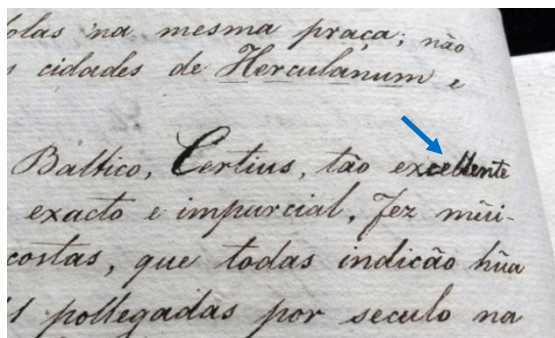 olas na mesma praça; não
cidades de Herculanum e
Baltico, Certius, tão excellente
exacto e imparcial, fez mũi-
costas, que todas indicão hũa
pollegadas por seculo na